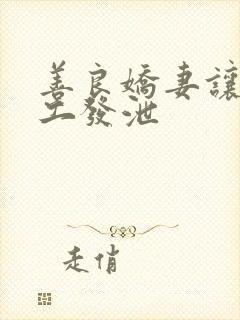 善良嬌妻讓
工發泄
走俏